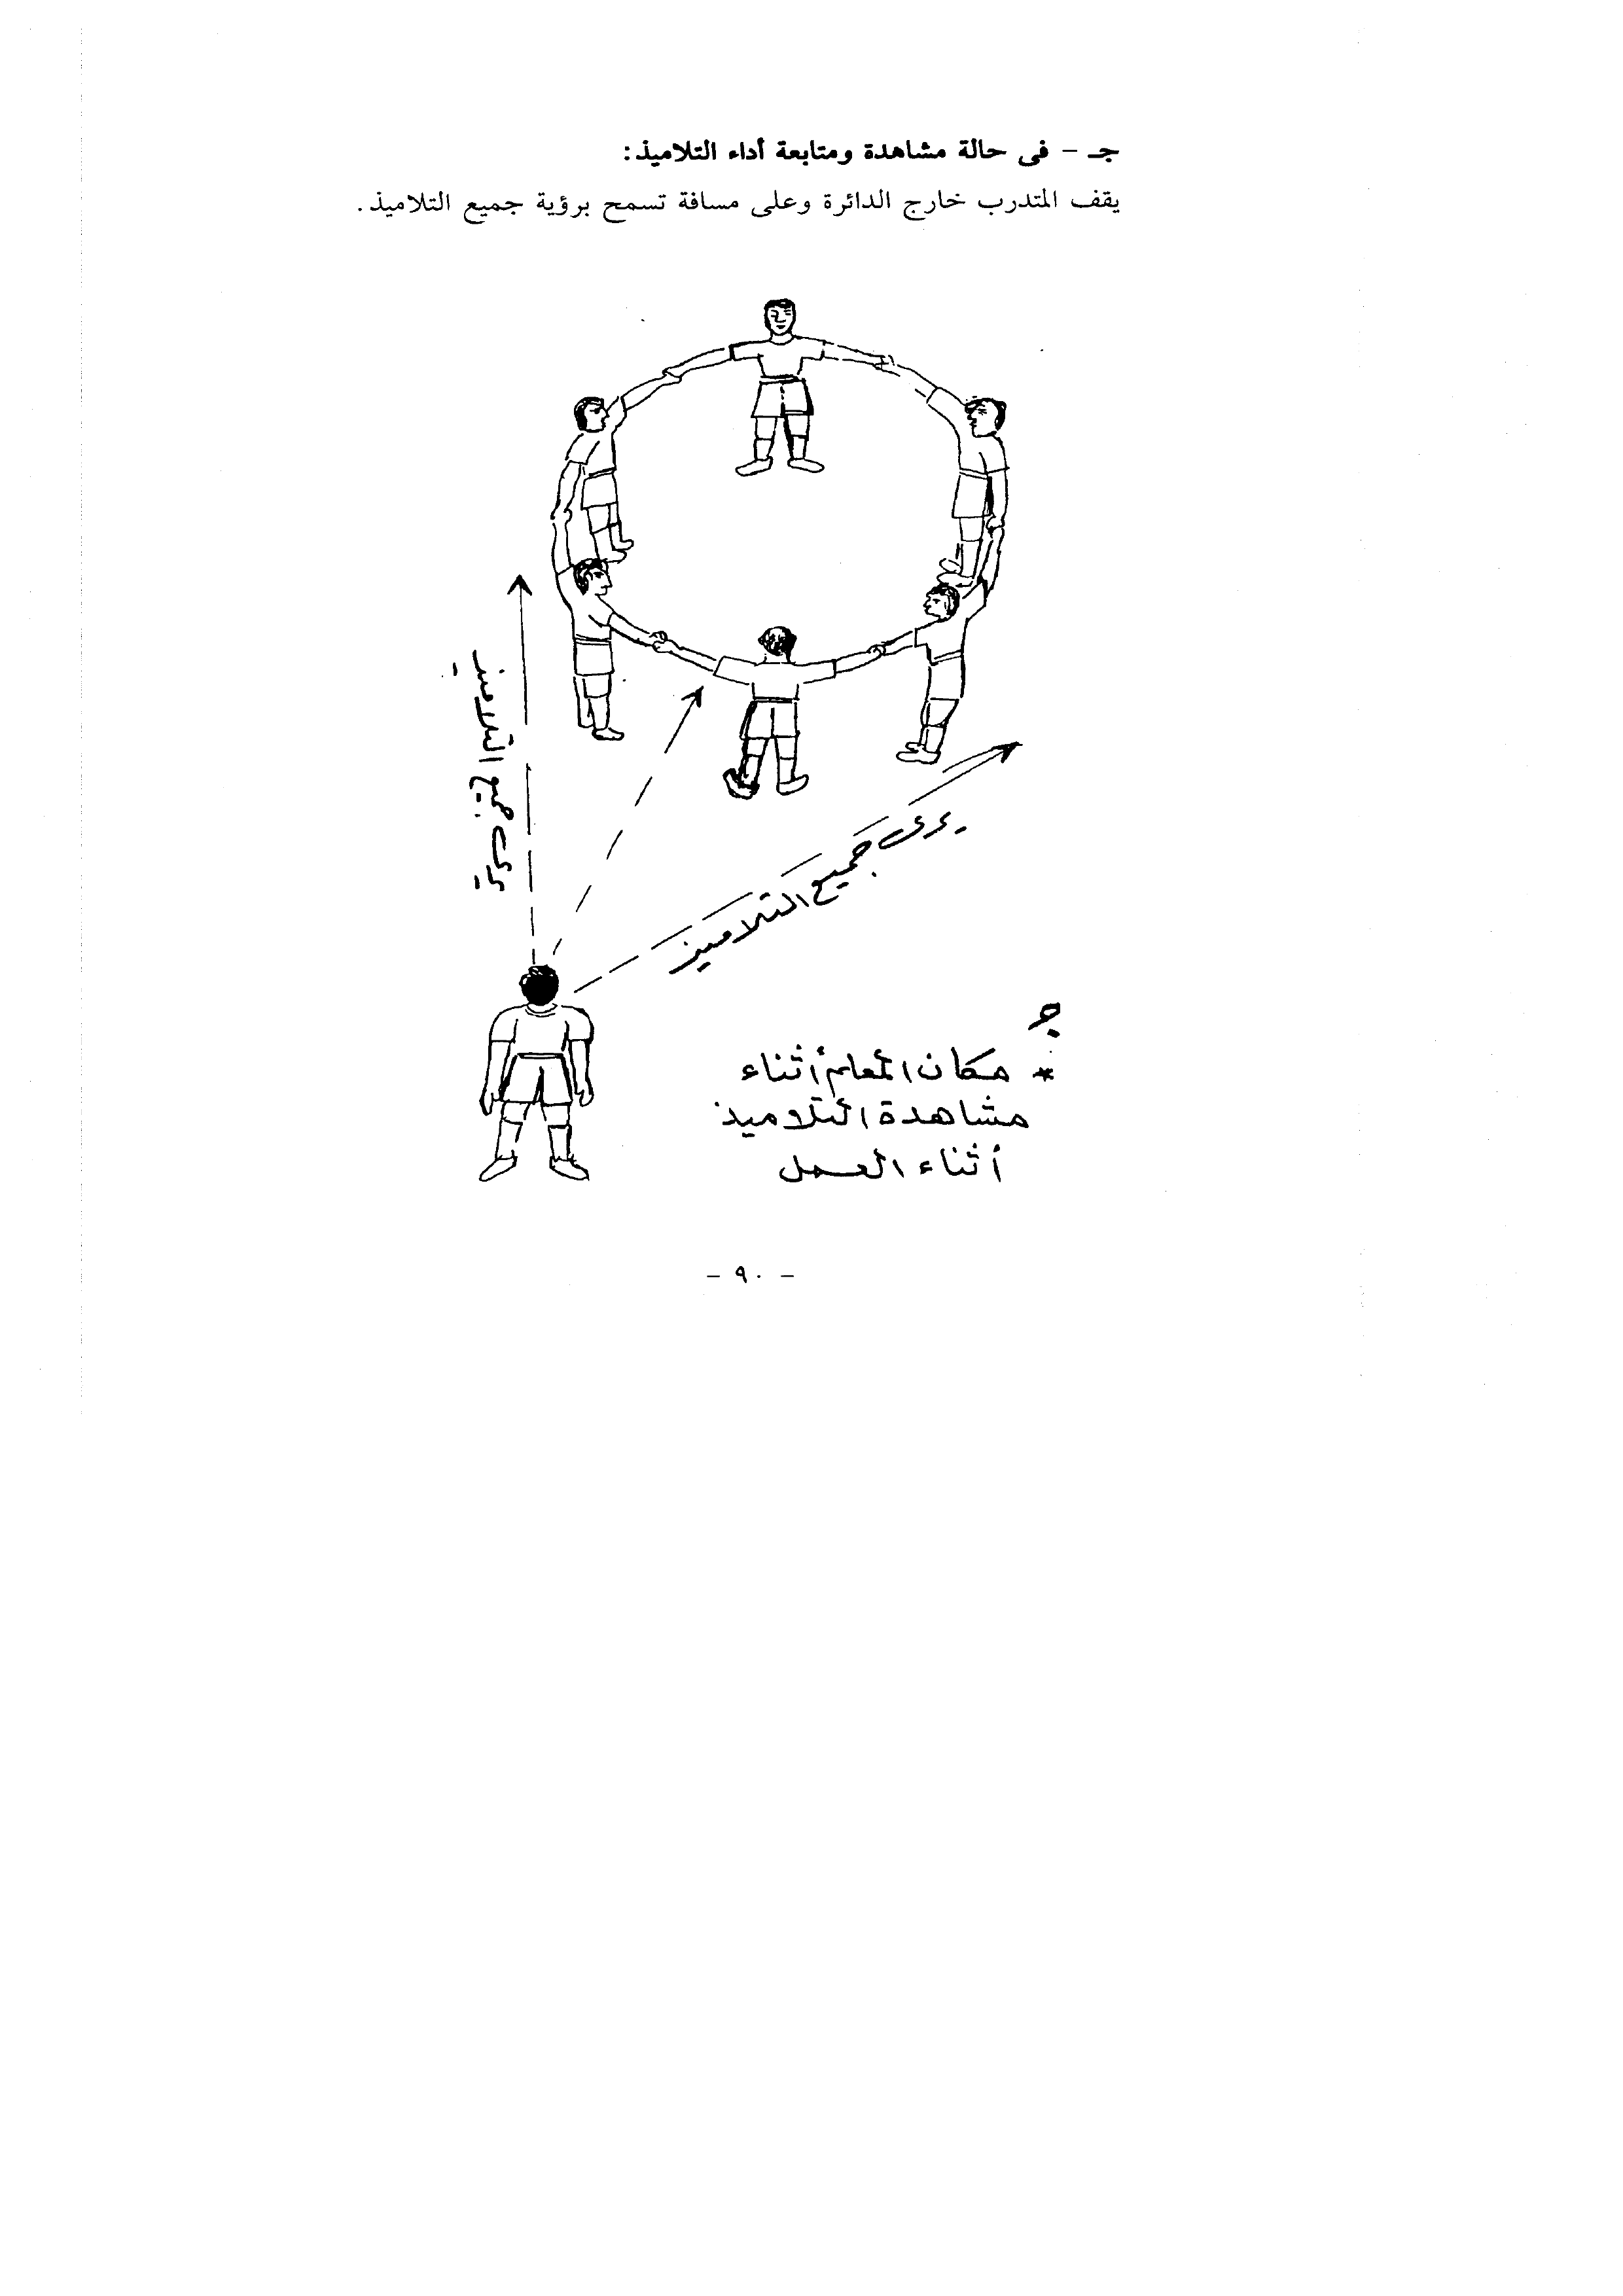 جـ - فى حالة مشاهدة ومتابعة أداء التلاميذ:
يقف المتدرب خارج الدائرة وعلى مسافة تسمح برؤية جميع التلاميذ.
يرى جميع التلاميذ
يرى جميع التلاميذ
جـ
* مكان المعلم أثناء
مشاهدة التلاميذ
أثناء العمل
- ٩٠ -